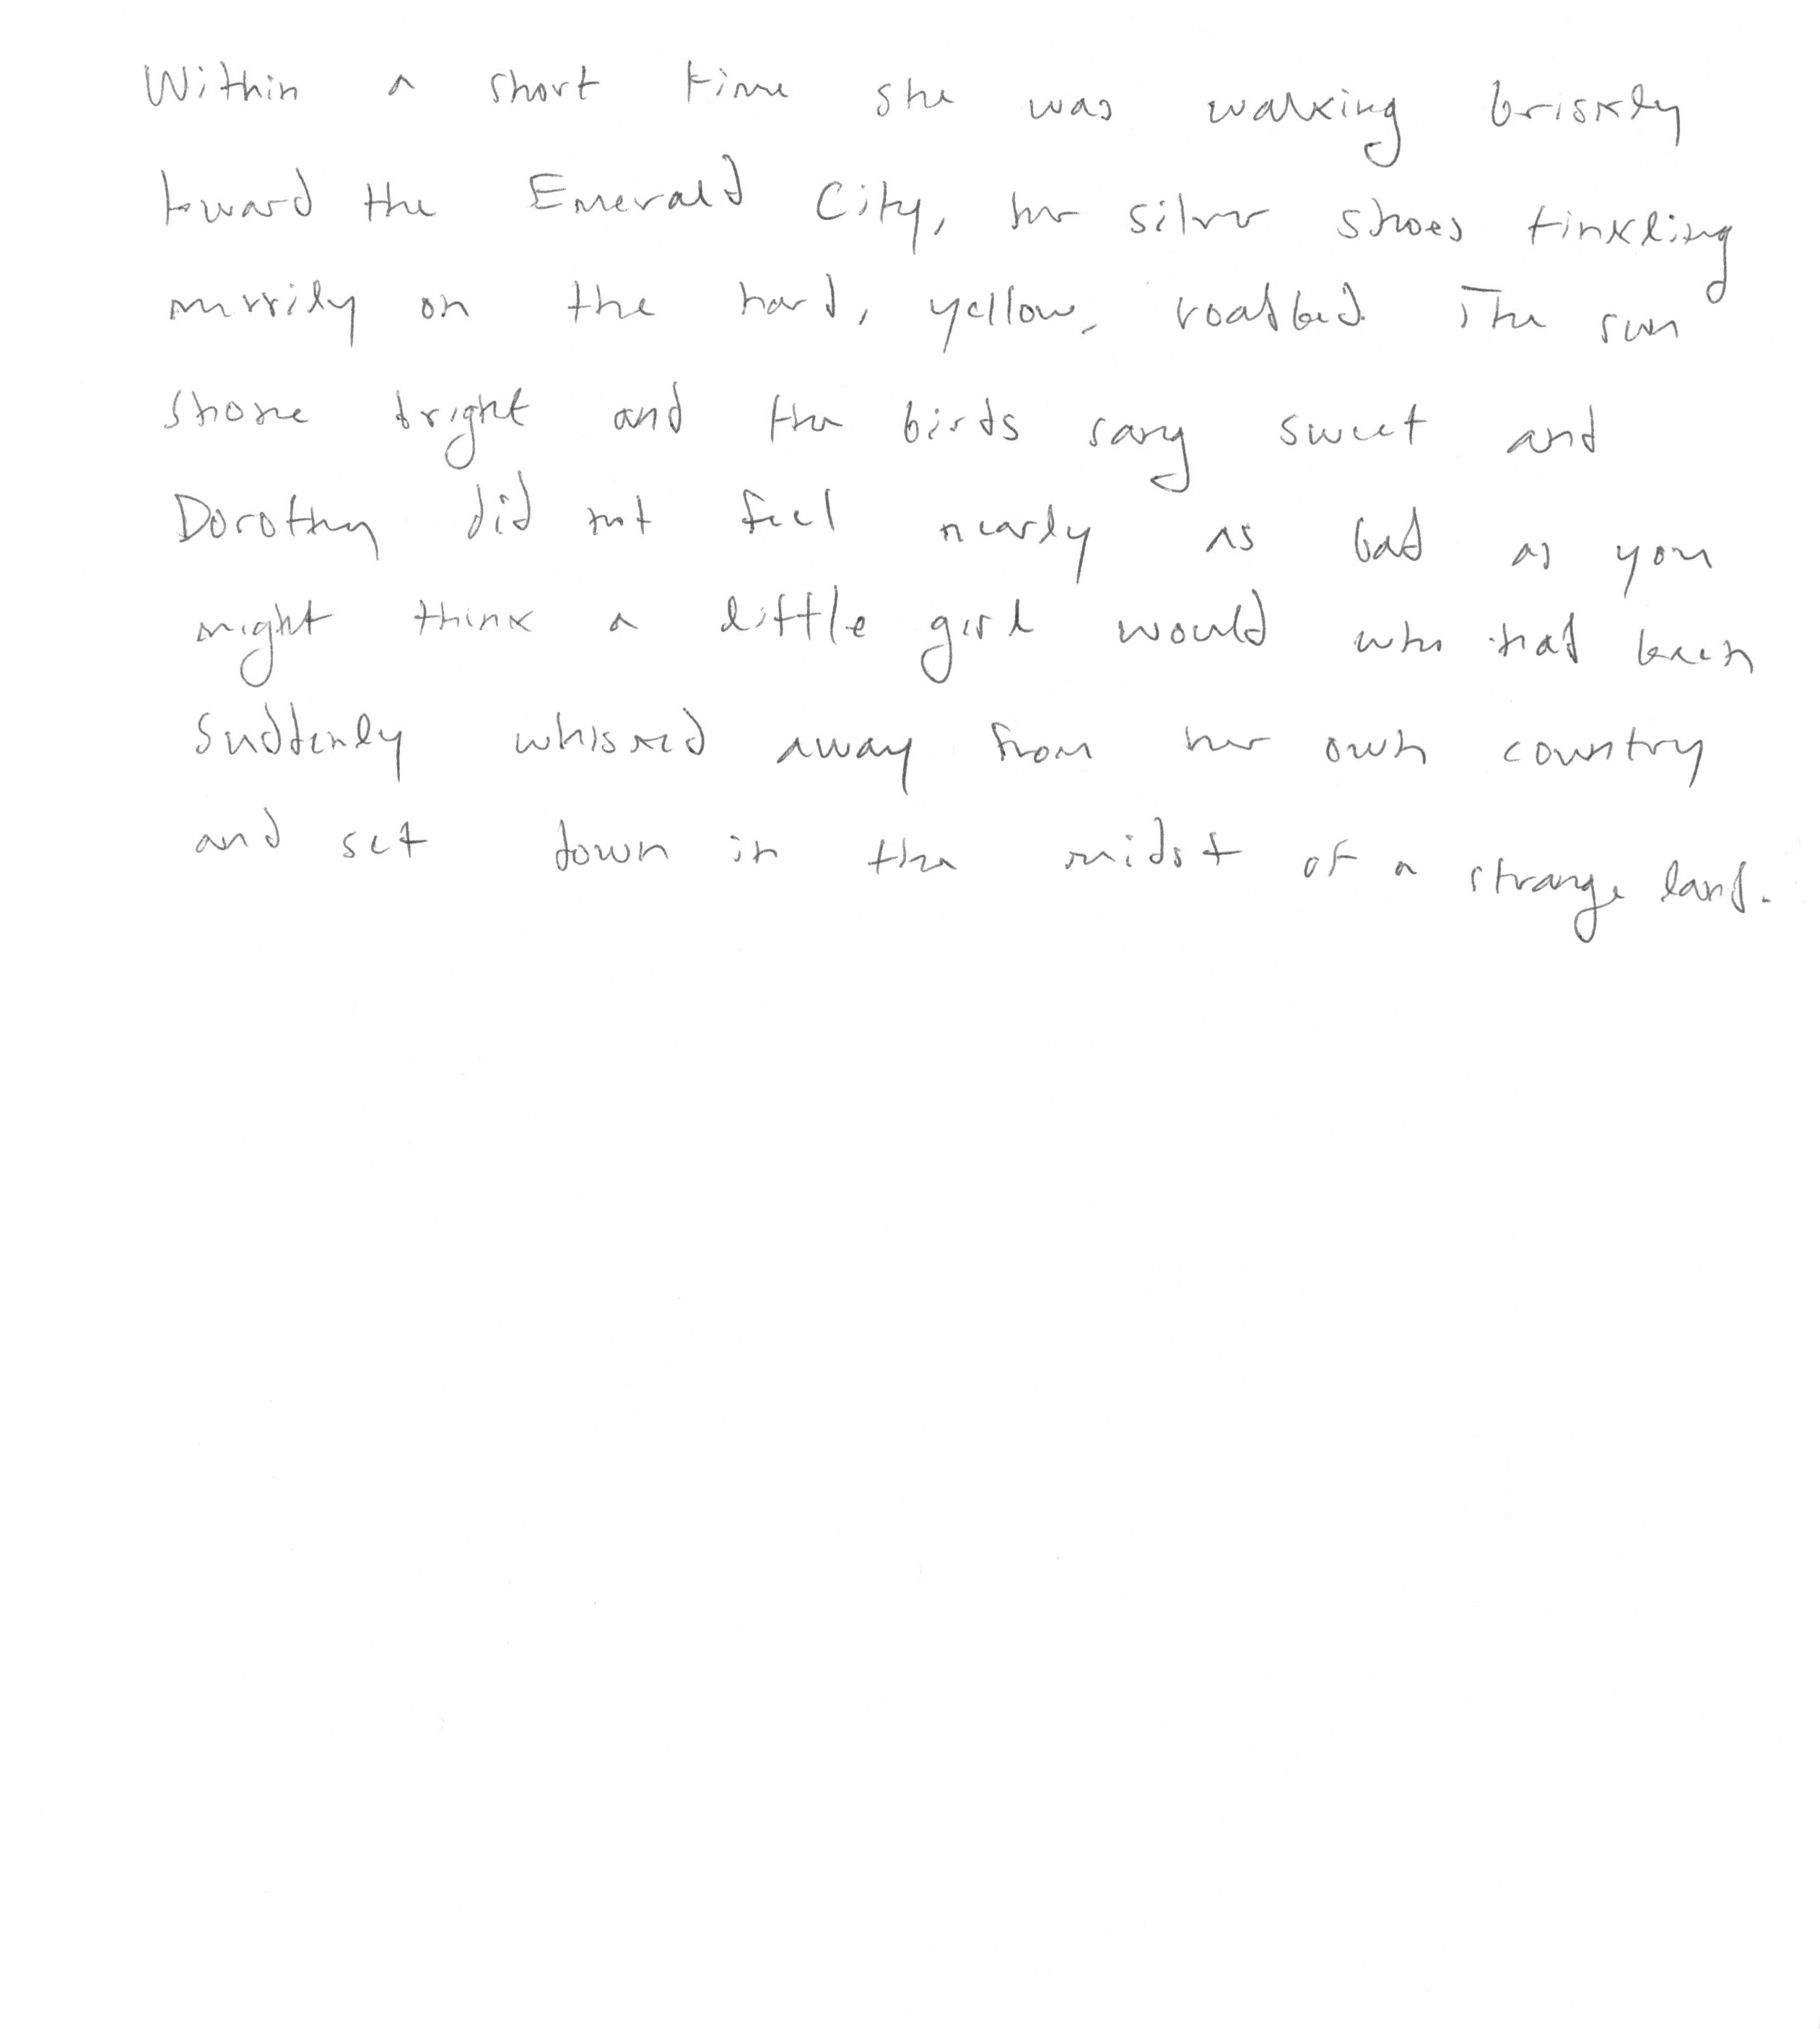 Within a short time she was walking briskly
toward the Emerald City, her silver shoes tinkling
merrily on the hard, yellow, roadbed. The sun
shone bright and the birds sang sweet and
Dorothy did not feel nearly as bad as you
might think a little girl would who had been
suddenly whisked away from her own country
and set down in the midst of a strange land.